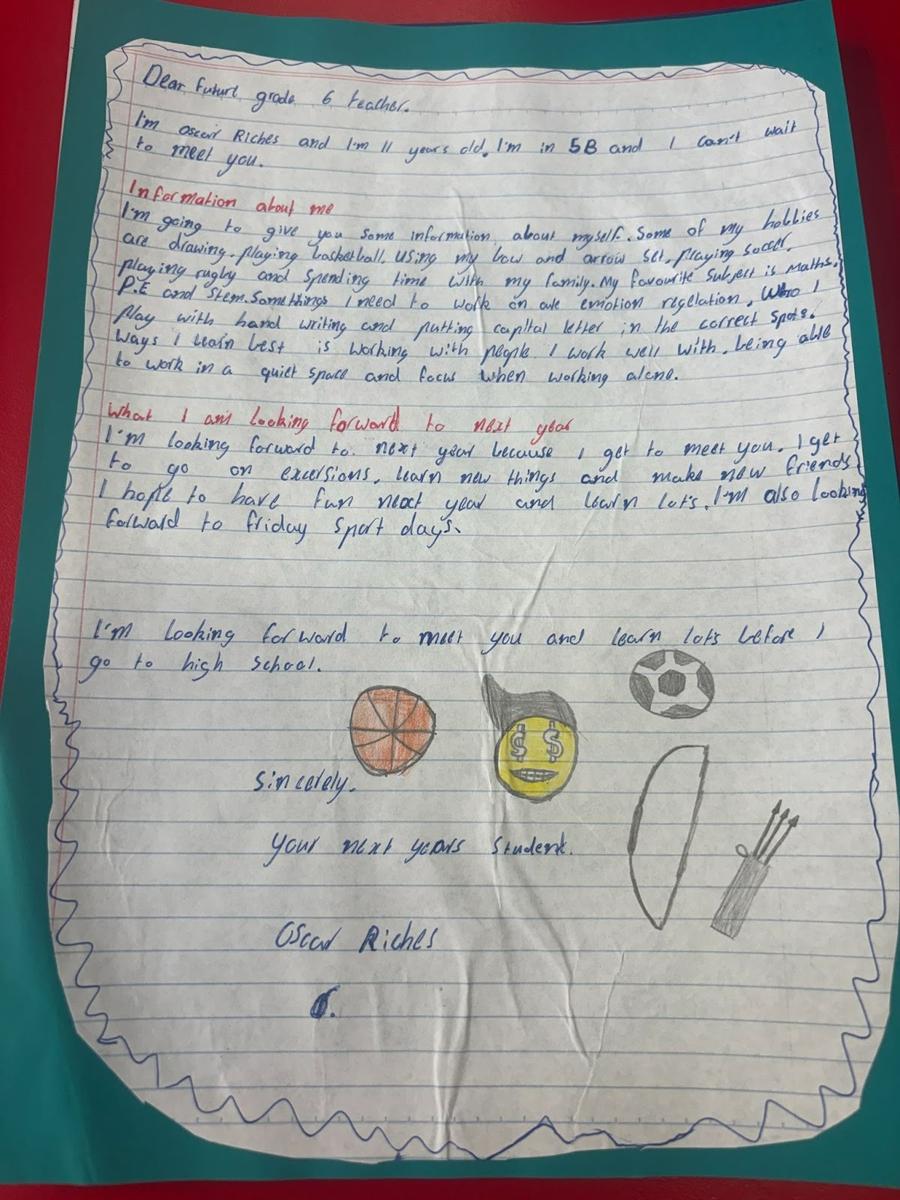 Dear Future grade 6 teacher.
I'm Oscar Riches and I'm 11 years old. I'm in 5B and I can't wait
to meet you.
Information about me
I'm going to give you some information about myself. Some of my hobbies
are drawing, playing basketball, using my bow and arrow set, playing soccer,
playing rugby and spending time with my family. My favourite subject is maths,
P.E and Stem. Some things I need to work on are emotion regelation, Who I
play with hand writing and putting capital letter in the correct spots.
Ways I learn best is working with people I work well with, being able
to work in a quiet space and focus when working alone.
What I am looking forward to next year
I'm looking forward to next year because I get to meet you, I get
to go on excersions, learn new things and make new friends
I hope to have fun next year and learn lot's. I'm also looking
forward to friday sport days.
I'm looking forward to meet you and learn lot's before I
go to high school.
Sincerely,
Your next years student.
Oscar Riches